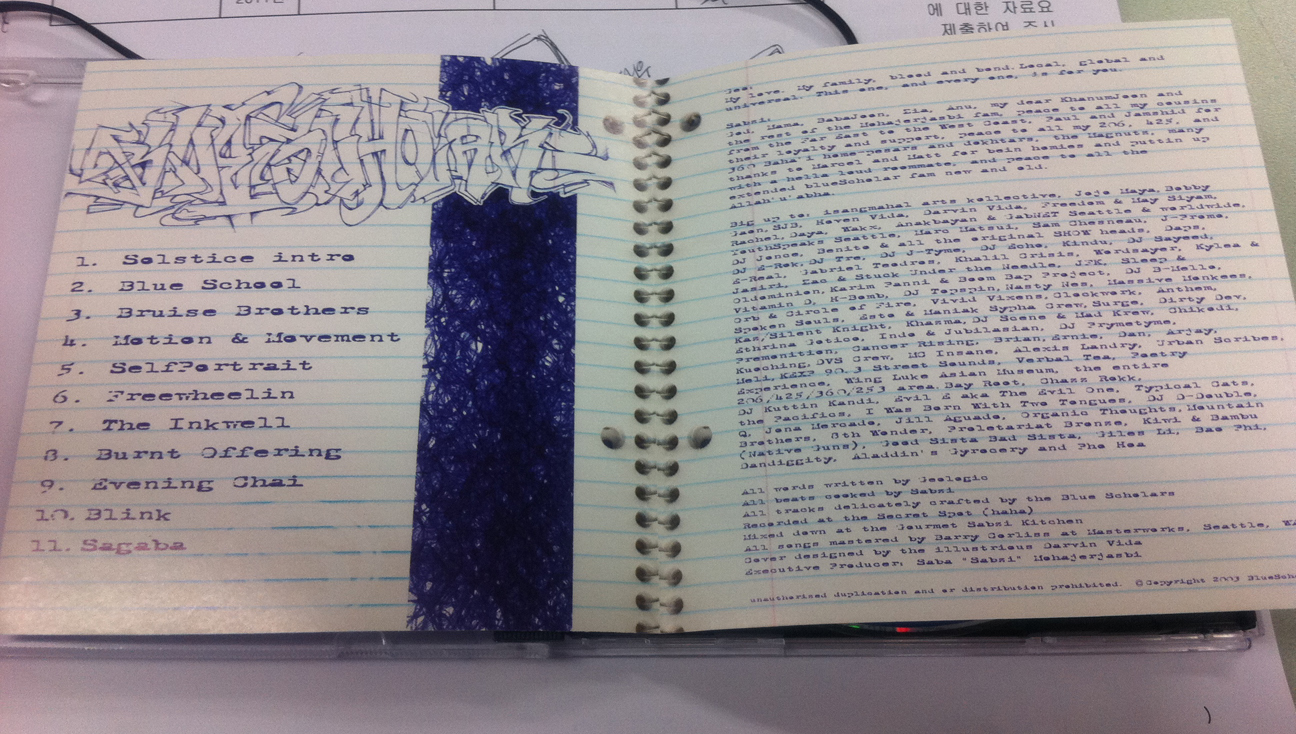 2011년
에 대한 자료요
제출하여 주시
BLUESCHOLARS
1. Solstice intro
2. Blue School
3. Bruise Brothers
4. Motion & Movement
5. SelfPortrait
6. Freewheelin
7. The Inkwell
8. Burnt Offering
9. Evening Chai
10. Blink
11. Sagaba
Geo.
My love. My family, blood and bond. Local, global and
universal. This one, and every one, is for you.
Sabzi.
Dad, Mama, BabaJoon, Zia, Anu, my dear KhanumJoon and
the rest of the Mohajerjasbi fam, peace to all my cousins
from the Far East to the West Coast. Paul and Jamshid for
their loyalty and support, peace to all my 206, 425, and
360 Baha'i home-pesars and dokhtars, the Magnuts, many
thanks to Marcel and Matt for bein homies and puttin up
with hella loud roommate, and peace to all the
extended blueScholar fam new and old.
Allah'u'abha.
Big up to: isangmahal arts kollective, Jojo Gaya, Bobby
Gaon, SJB, Roven Vida, Darvin Vida, Freedom & May Siyam,
Rachel, Daya, Wakx, Anakbayan & GabNET Seattle & worldwide,
YouthSpeaks Seattle, Marc Matsui, Sam Chesneau, J-Prome,
DJ Jence, Bonite & all the original SHOW heads, Daps,
DJ E-Rok, DJ Tre, DJ J-Tyme, DJ Scho, Kindu, DJ Sayeed,
E-Real, Gabriel Teodros, Khalil Crisis, Wordsayer, Kylea &
Jasiri, Zac & Stuck Under the Needle, JFK, Sleep &
Oldominion, Karim Panni & Boom Bap Project, DJ B-Mello,
Vitamin D, H-Bomb, DJ Topspin, Nasty Nes, Massive Monkees,
Orb & Circle of Fire, Vivid Vixens, Clockwork, Anthem,
Spoken Souls, Asto & Maniak Sypha Crew, Surge, Dirty Dev,
Kas/Silent Knight, Khazma, DJ Scene & Mad Krew, Chikodi,
Ethrina Jotico, Indo & Jubilasian, DJ Prymetyme,
Premonition, Cancer Rising, Brian, Ernie, Dan, Arjay,
Kuoching, DVS Crew, MC Insane, Alexis Landry, Urban Scribes,
Meli, KEXP 90.3 Street Sounds, Verbal Tea, Poetry
Experience, Wing Luke Asian Museum, the entire
206/425/360/253 area, Bay Root, Chazz Rokk,
DJ Kuttin Kandi, Evil E aka The Evil One, Typical Cats,
the Pacifics, I Was Born With Two Tongues, DJ D-Double,
Q, Jena Mercado, Jill Aguado, Organic Thoughts, Mountain
Brothers, 8th Wonder, Proletariat Bronze, Kiwi & Bambu
(Native Guns), Good Sista Bad Sista, Giles Li, Bao Phi,
Dandiggity, Aladdin's Gyrocery and Pho Hoa
All words written by Geologic
All beats cooked by Sabzi
All tracks delicately crafted by the Blue Scholars
Recorded at the Secret Spot (haha)
Mixed down at the Gourmet Sabzi Kitchen
All songs mastered by Barry Corliss at Masterworks, Seattle, WA
Cover designed by the illustrious Darvin Vida
Executive Producer: Saba "Sabzi" Mohajerjasbi
unauthorized duplication and or distribution prohibited. ©Copyright 2003 BlueScho